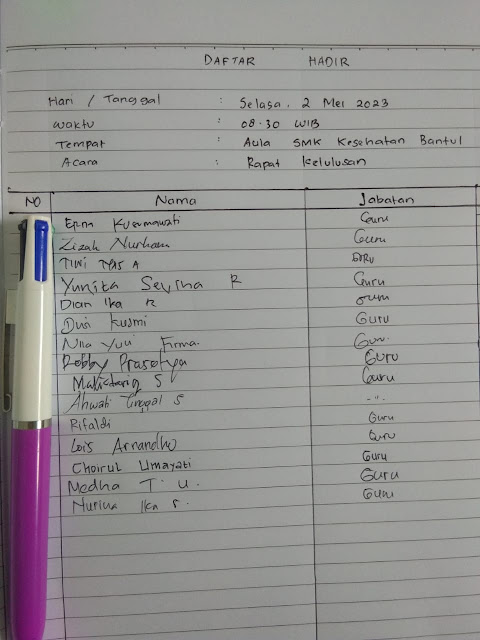 DAFTAR HADIR
Hari / Tanggal : Selasa, 2 Mei 2023
Waktu : 08.30 WIB
Tempat : Aula SMK Kesehatan Bantul
Acara : Rapat Kelulusan
NO Nama Jabatan
Erna Kusumawati Guru
Zizah Nurhana Guru
TIWI TYAS A GURU
Yunita Sevina R Guru
Dian Ika R Guru
Dwi Kusmi Guru
Nila Yuli Firma Guru
Robby Prasetya Guru
S Guru
Tinggal S -"-
Rifaldi Guru
Lois Arnandho Guru
Choirul Umayati Guru
Medha T. U. Guru
Ika S. Guru